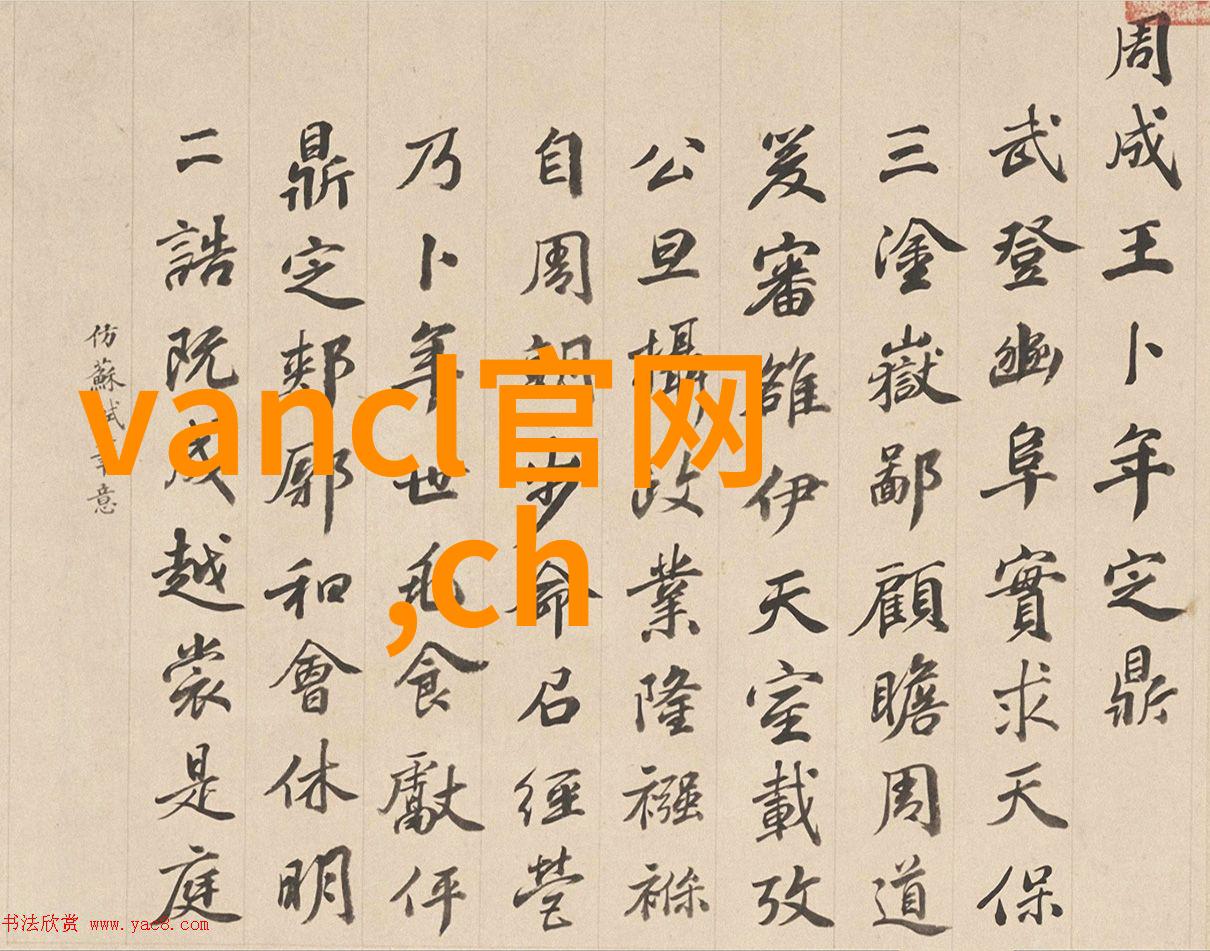 周成王卜年定鼎
武登幽阜實求天保
三塗嶽鄙顧瞻周道
爰審雒伊天室載攷
公旦攝政業隆襁褓
自周朝步命召經營
乃卜年世食獻伻
鼎定郟鄏和會休明
二誥既成越裳是庭
仿蘇軾筆意
vancl官网
,ch
书法欣赏 www.yac8.com